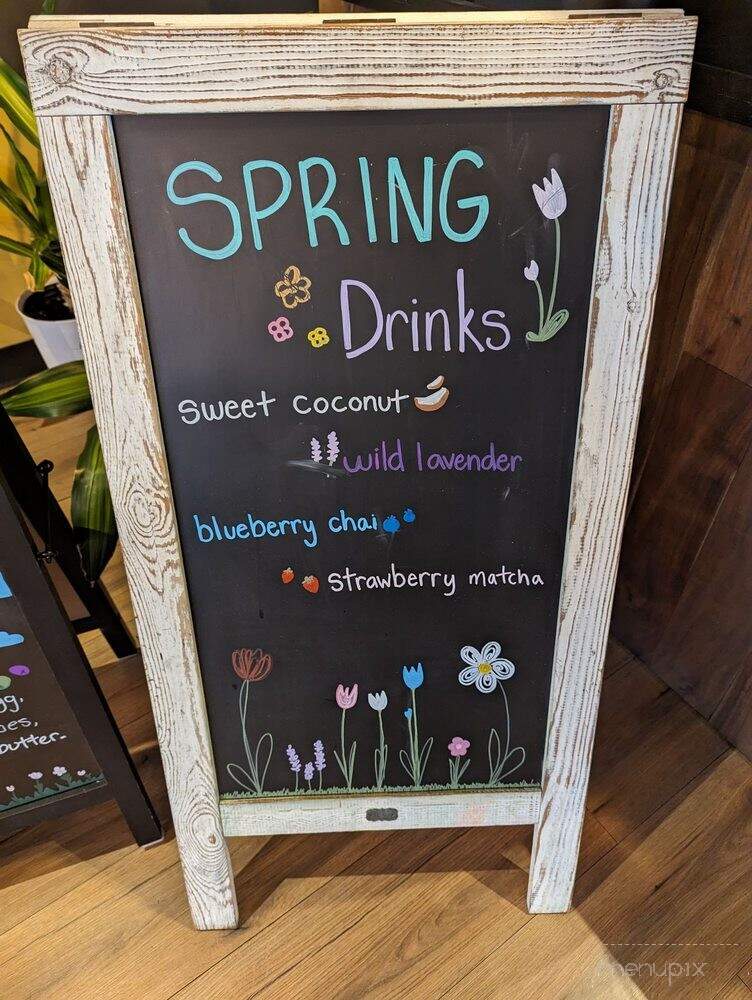 SPRING
Drinks
sweet coconut
wild lavender
blueberry chai
strawberry matcha
menupix